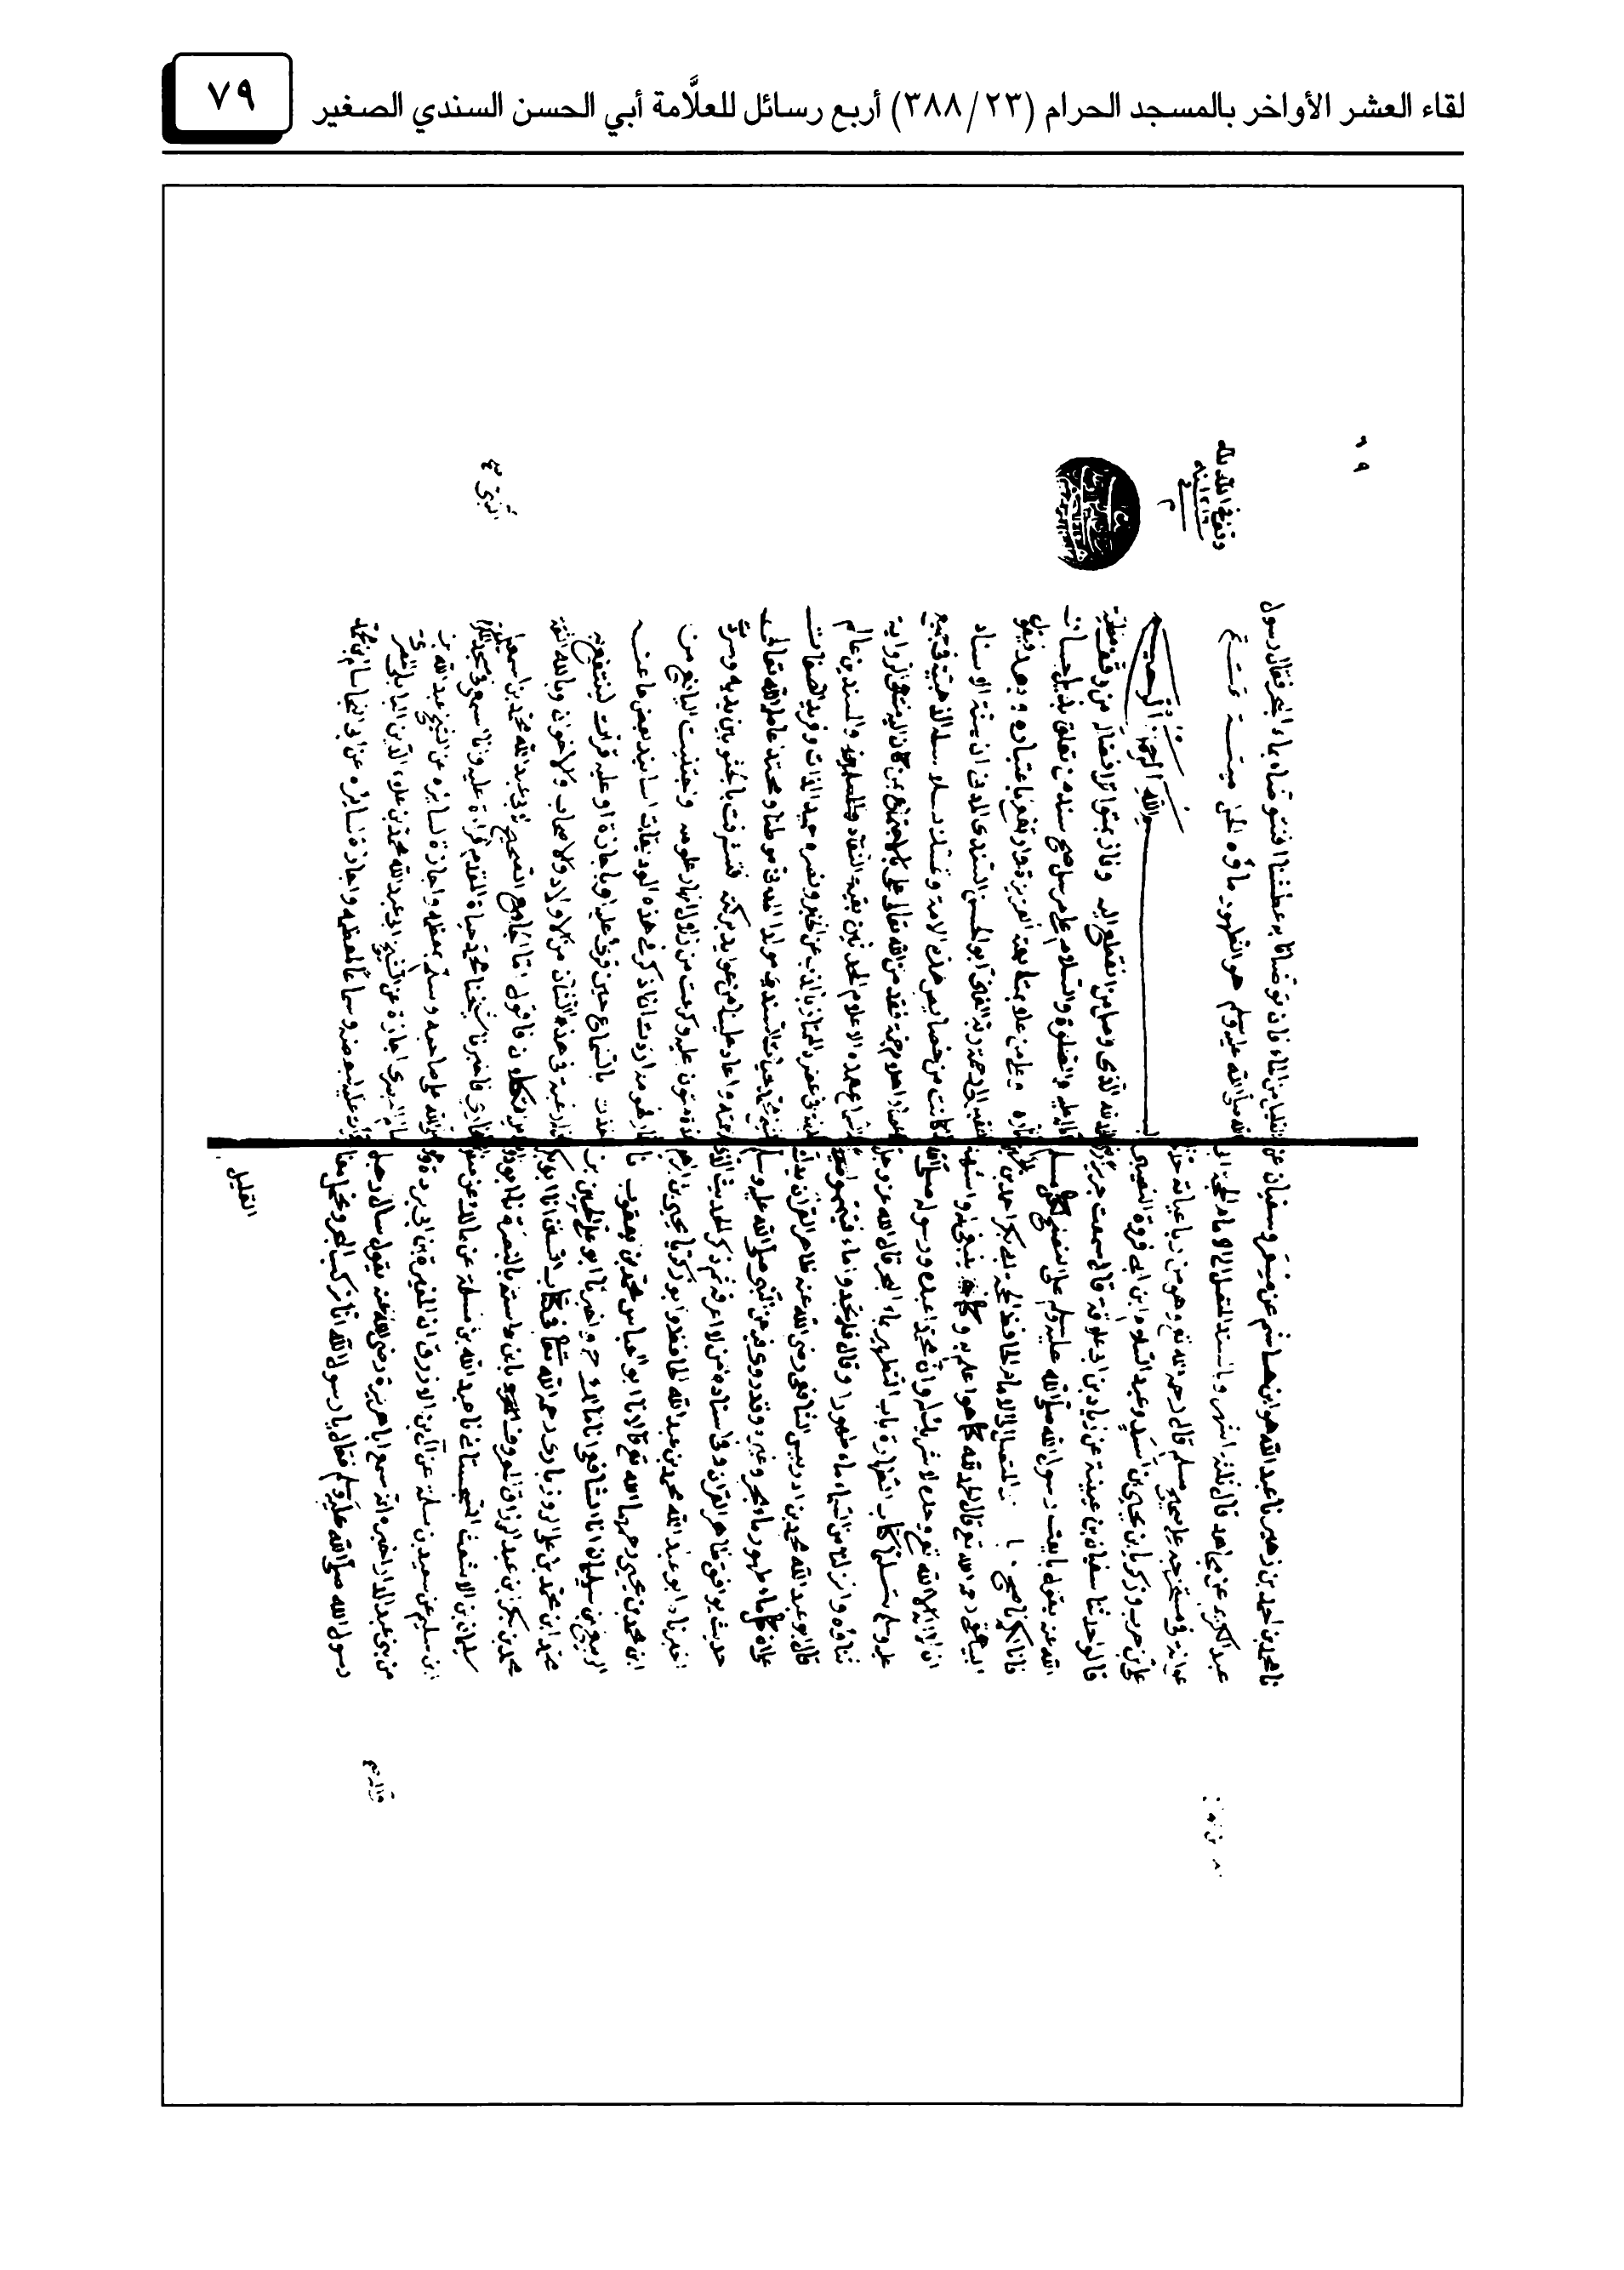 لقاء العشر الأواخر بالمسجد الحرام (٢٣/ ٣٨٨) أربع رسائل للعلَّامة أبي الحسن السندي الصغير
٧٩
نا محمد بن احمد بن زهير نا عبد الله هو ابن هاشم عن مسعر وسفيان عن
عبد الكريم عن مجاهد قال ثلثة اشهر وبالسند المتصل الى الامام الحجة ابي
عوانة في مستخرجه على صحيح مسلم قال رحمه الله تع وهو من رباعياته حدثنا
علي بن حرب وزكريا بن يحيى بن اسد وعبد السلام ابن ابي فروة النصيبي
قالوا حدثنا سفيان بن عيينة عن زياد بن علاقة قال سمعت جرير
الله عنه يقول بايعت رسول الله صلى الله عليه وسلم على النصح لكل مسلم
فانا لكم ناصح المتصل الى الامام الحافظ الحجة ابي بكر احمد بن
البيهقي رحمه الله تع قال الحمد لله كما هو اهله وكما ينبغي له واشهد
ان لا اله الا الله تع وحده لا شريك له وان محمدا عبده ورسوله صلى الله
عليه وسلم تسليما كتاب الطهارة باب التطهير بماء البحر قال الله عز وجل
ثناؤه وانزلنا من السماء ماء طهورا وقال فلم تجدوا ماء فتيمموا
قال ابو عبد الله محمد بن ادريس الشافعي رضي الله عنه ظاهر القرآن يدل
على ان كل ماء طهور ماء بحر وغيره وقد روي فيه عن النبي صلى الله عليه وسلم
حديث يوافق ظاهر القرآن وفي اسناده من لا اعرفه ثم ذكر الحديث الذي
اخبرناه ابو عبد الله محمد بن عبد الله الحافظ وابو زكريا يحيى بن ابراهيم
ابن محمد بن يحيى رحمهما الله تع قالا نا ابو العباس محمد بن يعقوب نا
الربيع بن سليمان انا الشافعي انا مالك ح واخبرنا ابو علي الحسين بن
محمد ابن محمد بن علي الروذباري رحمه الله تعالى في كتاب السنن انا ابو بكر
محمد بن بكر بن عبد الرزاق المعروف بابن داسة بالبصرة نا ابو داود
سليمان بن الاشعث السجستاني نا عبد الله بن مسلمة عن مالك عن صفوان
ابن سليم عن سعيد بن سلمة عن آل ابن الازرق ان المغيرة بن ابي بردة وهو
من بني عبد الدار اخبره انه سمع ابا هريرة رضي الله عنه يقول سال رجل
رسول الله صلى الله عليه وسلم فقال يا رسول الله انا نركب البحر ونحمل معنا
القليل
القليل من الماء فان توضأنا به عطشنا افنتوضأ بماء البحر فقال رسول
الله صلى الله عليه وسلم هو الطهور ماؤه الحل ميتته
بسم الله الرحمن الرحيم
الحمد لله الذي وصل من انقطع اليه وفاز بمتواتر افضاله من وقف
عليه والصلوة والسلام على مرسل صح سند من تعلق بذيل
وعلى من علا بمتابعته العزيزة وبعد فيقول
الفقير الى رحمة ربه الغني ابو الحسن السندي المدني ان الاسناد
لما كانت من خصايص هذه الامة سلاسله الذهبية في جميع
فقد من الله تعالى علي بالاجتماع بمن كان اليه منتهى الرواية
هذه الاعلام المحدثين بقية النقاد والمسندين عالم
المدينة في عصره جميل الذات وفريد الصفات
الشيخ محمد حيات السندي مولدا المدني موطنا ومحتدا عامله الله تعالى
برحمته واعاد علينا من عوايد بركته فتشرفت بالجثو بين يديه وسردت
عدة متون عليه وكرعت من زلال انهار علومه واجتنيت اليانع من
ثمار فهومه اردت ان اذكر في هذه الوريقات اسانيد بعض ما عنه
اخذت بالسماع حين قرئ عليه او باجازة او عليه قرأت لينتفع به
من له رغبة في هذا الشان من الاولاد والاصحاب والاخوان وبالله الثقة
التكلان فاقول اما الجامع الصحيح لابي عبد الله محمد بن اسمعيل
البخاري فاخبرنا شيخنا محمد حياة المقدم قراءة عليه وانا اسمع في مسجد
صلى الله على صاحبه وسلم بعضه واجازة لسايره عن الشيخ عبد الله بن
سالم البصري اجازة عن الشيخ ابي عبد الله محمد بن علاء الدين البابلي المصري
قراءة عليه لبعضه وسماعا لبعضه واجازة لسايره عن ابي النجا سالم بن محمد